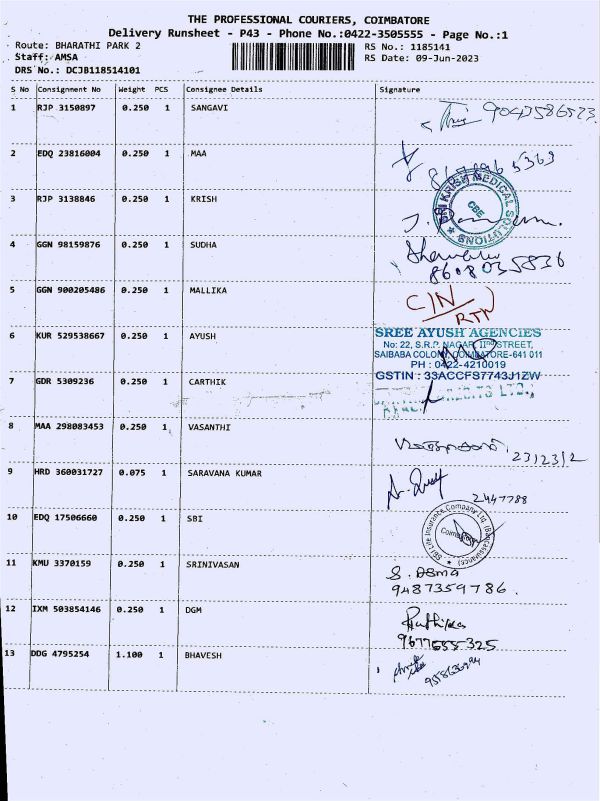 THE PROFESSIONAL COURIERS, COIMBATORE
Delivery Runsheet - P43 - Phone No.:0422-3505555 - Page No.:1
Route: BHARATHI PARK 2 RS No.: 1185141
Staff: AMSA RS Date: 09-Jun-2023
DRS No.: DCJB118514101
S No Consignment No Weight PCS Consignee Details Signature
1 RJP 3150897 0.250 1 SANGAVI
2 EDQ 23816004 0.250 1 MAA
3 RJP 3138846 0.250 1 KRISH
SRI KRISH MEDICAL SOLUTIONS CBE
4 GGN 98159876 0.250 1 SUDHA
8608035836
5 GGN 900205486 0.250 1 MALLIKA
C/N
RTN
6 KUR 529538667 0.250 1 AYUSH
SREE AYUSH AGENCIES
No: 22, S.R.P. NAGAR, IInd STREET,
SAIBABA COLONY, COIMBATORE-641 011
PH : 0422-4210019
GSTIN : 33ACCFS7743J1ZW
7 GDR 5309236 0.250 1 CARTHIK
8 MAA 298083453 0.250 1 VASANTHI
9 HRD 360031727 0.075 1 SARAVANA KUMAR
2447788
10 EDQ 17506660 0.250 1 SBI
SBI Life Insurance Company Ltd. (Bancassurance)
11 KMU 3370159 0.250 1 SRINIVASAN
9487359786.
12 IXM 503854146 0.250 1 DGM
13 DDG 4795254 1.100 1 BHAVESH